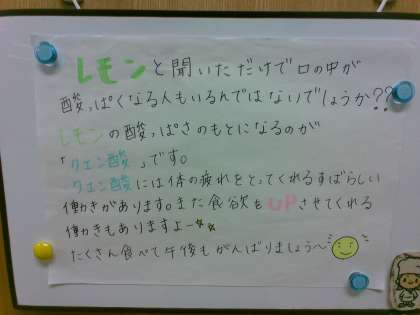 レモンと聞いただけで口の中が
酸っぱくなる人もいるんではないでしょうか??
レモンの酸っぱさのもとになるのが
「クエン酸」です。
クエン酸には体の疲れをとってくれるすばらしい
働きがあります。また食欲をUPさせてくれる
働きもありますよー☆☆
たくさん食べて午後もがんばりましょう〜